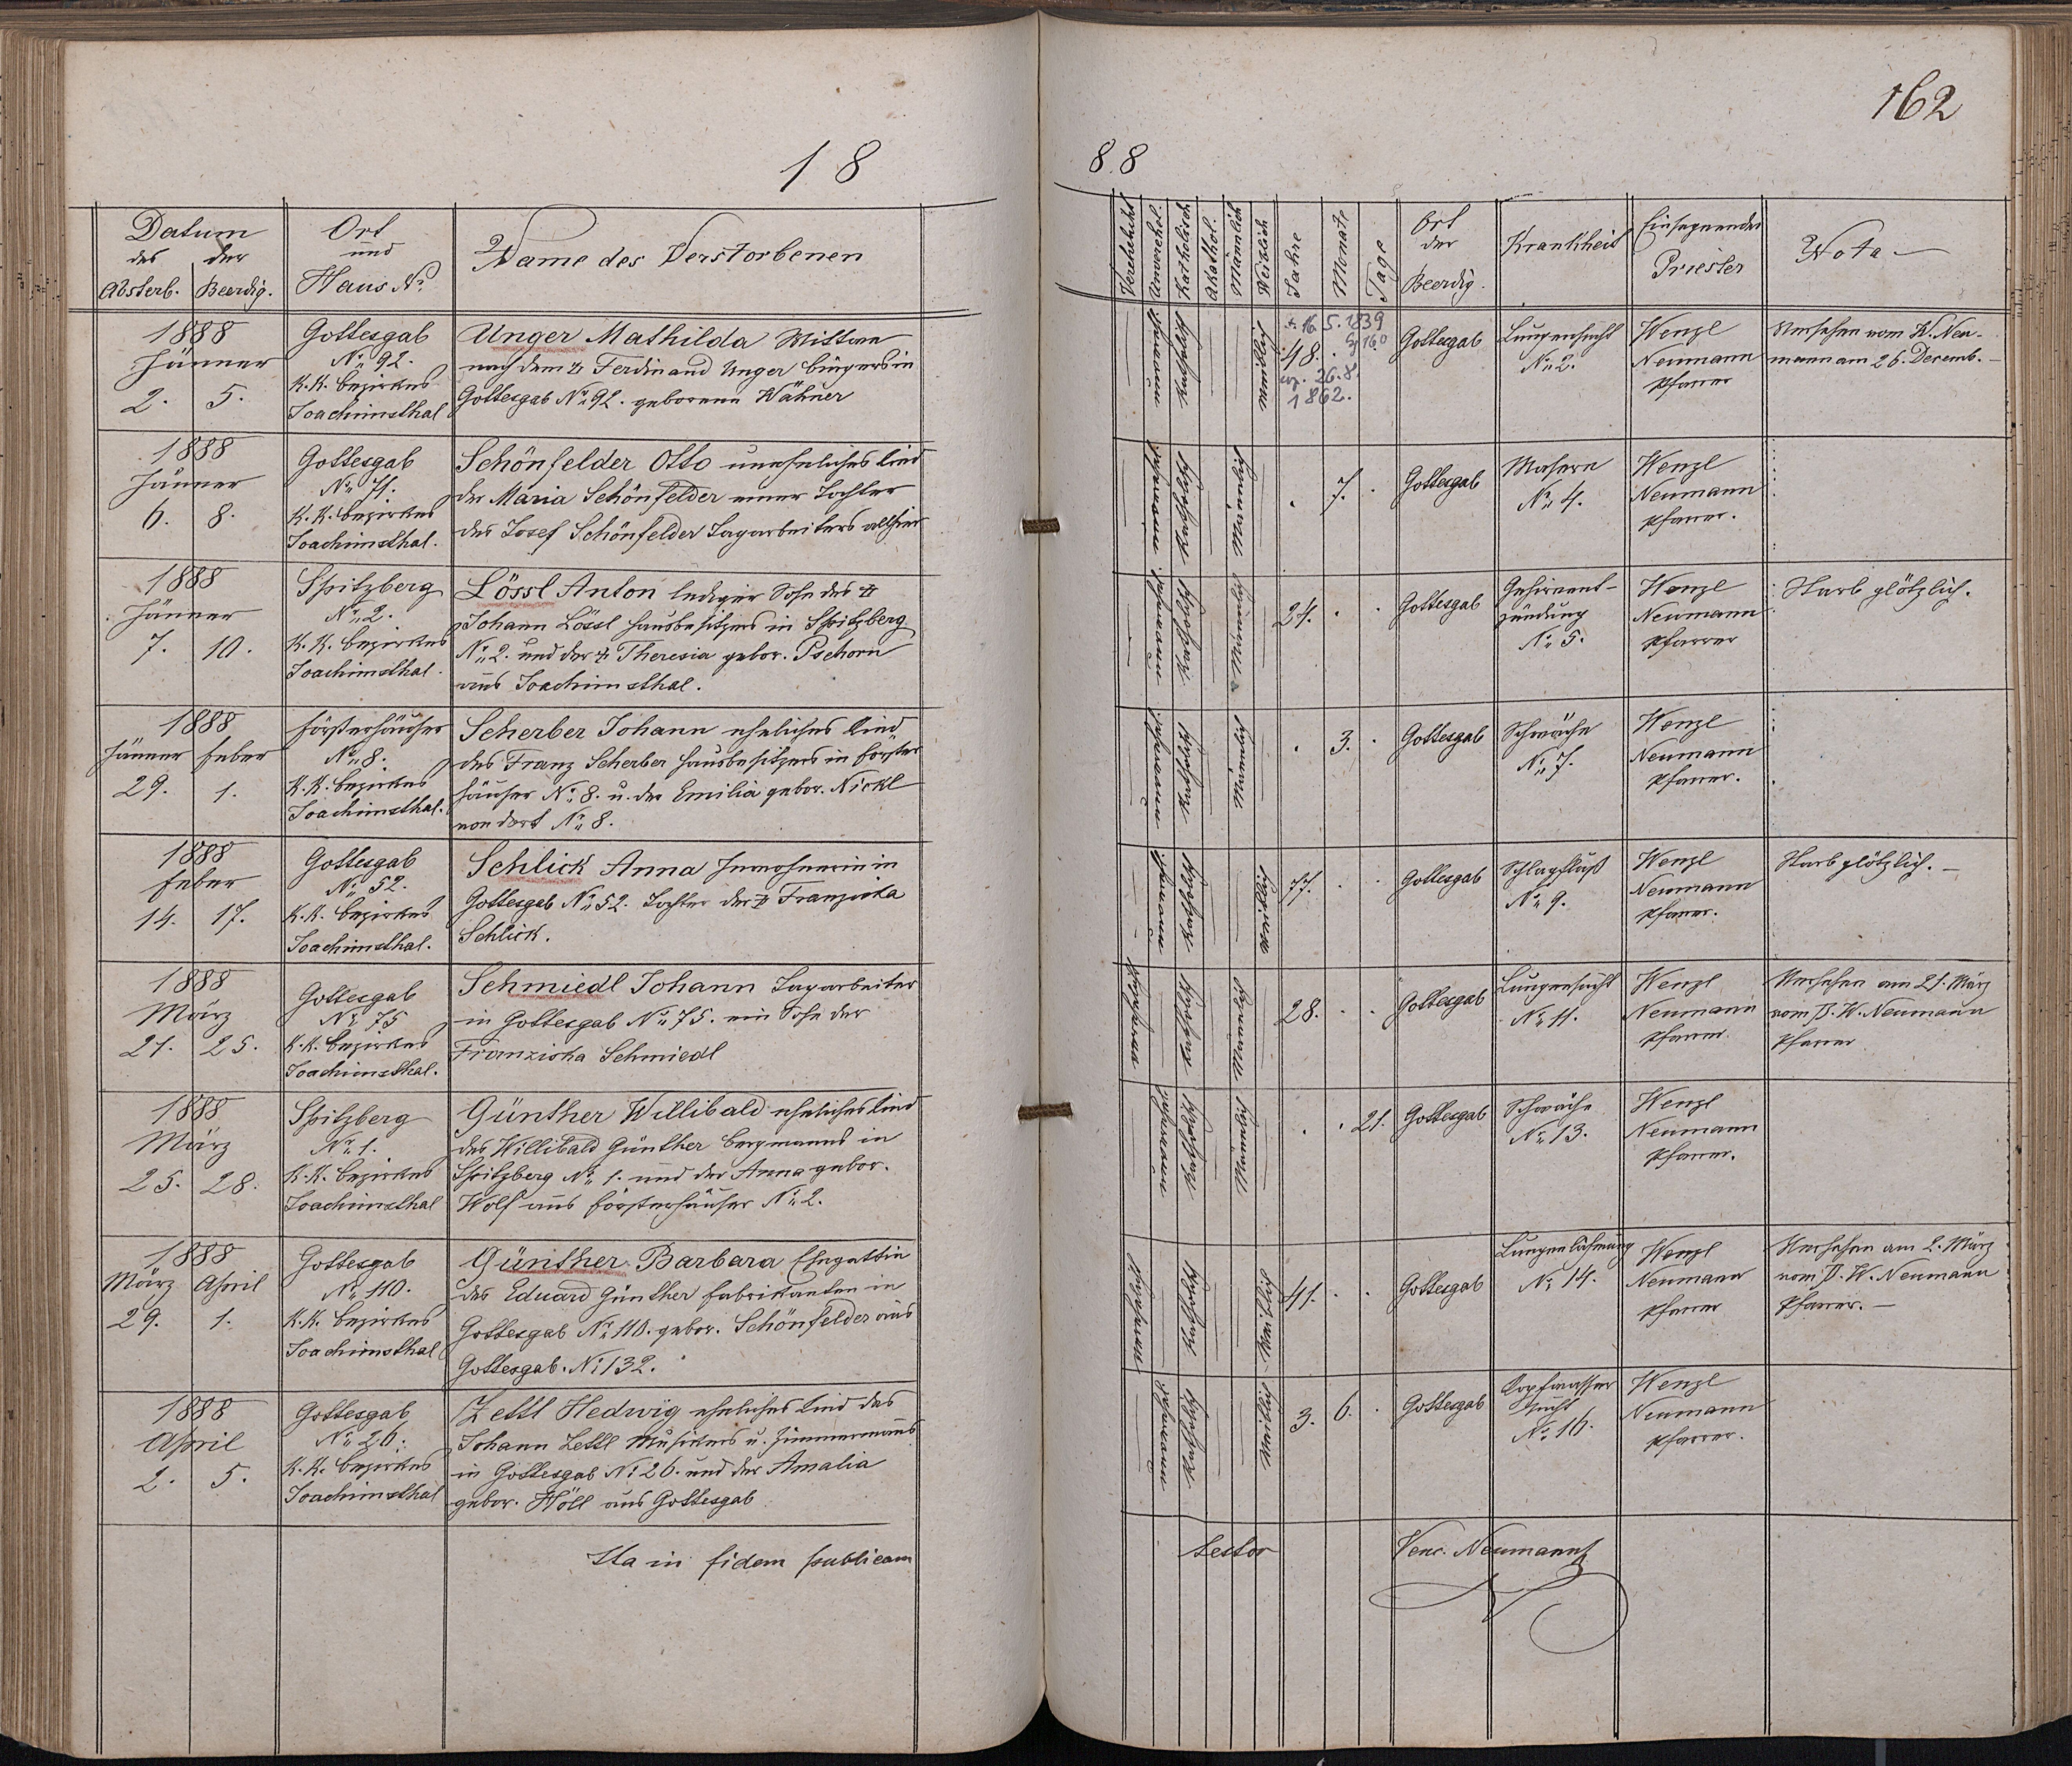 162
18
88
Datum
des der
Absterb. Beerdig.
Ort
und
Haus No
Name des Verstorbenen
Verehelicht
Unverehel.
Katholisch
Akathol.
Mänlich
Weiblich
Jahre
Monate
Tage
Ort
der
Beerdig.
Krankheit
Einsegnender
Priester
Nota
1888
Jänner
2. 5.
Gottesgab
No 92.
K. K. Bezirkes
Joachimsthal
Unger Mathilda Wittwe
nach dem † Ferdinand Unger Bürgers in
Gottesgab No 92. geborene Wähner
katholisch
weiblich
*. 16. 5. 1839
48.
26. 8.
1862.
Gottesgab
Lungensucht
No 2.
Wenzl
Neumann
Pfarrer
Versehen vom W. Neu-
mann am 26. Decemb.
1888
Jänner
6. 8.
Gottesgab
No 71.
K. K. Bezirkes
Joachimsthal.
Schönfelder Otto uneheliches Kind
der Maria Schönfelder einer Tochter
des Josef Schönfelder Tagarbeiters allhier
katholisch
männlich
7.
Gottesgab
Masern
No 4.
Wenzl
Neumann
Pfarrer.
1888
Jänner
7. 10.
Spitzberg
No 2.
K. K. Bezirkes
Joachimsthal.
Lössl Anton lediger Sohn des †
Johann Lössl Hausbesitzers in Spitzberg
No 2. und der † Theresia gebor. Pschorn
aus Joachimsthal.
katholisch
männlich
24.
Gottesgab
Gehirnent-
zündung
No 5.
Wenzl
Neumann
Pfarrer
Starb plötzlich.
1888
Jänner Feber
29. 1.
Försterhäuser
No 8.
K. K. Bezirkes
Joachimsthal.
Scherber Johann eheliches Kind
des Franz Scherber Hausbesitzers in Förster
häuser No 8. u. der Emilia gebor. Nickl
von dort No 8.
katholisch
männlich
3.
Gottesgab
Schwäche
No 7.
Wenzl
Neumann
Pfarrer.
1888
Feber
14. 17.
Gottesgab
No 52.
K. K. Bezirkes
Joachimsthal.
Schlick Anna Inwohnerin in
Gottesgab No 52. Tochter der † Franziska
Schlick.
katholisch
weiblich
77.
Gottesgab
Schlagfluß
No 9.
Wenzl
Neumann
Pfarrer.
Starb plötzlich.
1888
März
21. 25.
Gottesgab
No 75
K. K. Bezirkes
Joachimsthal.
Schmiedl Johann Tagarbeiter
in Gottesgab No 75. ein Sohn der
Franziska Schmiedl
verehelicht
katholisch
männlich
28.
Gottesgab
Lungensucht
No 11.
Wenzl
Neumann
Pfarrer.
Versehen am 21. März
vom P. W. Neumann
Pfarrer
1888
März
25. 28.
Spitzberg
No 1.
K. K. Bezirkes
Joachimsthal
Günther Willibald eheliches Kind
des Willibald Günther Bergmanns in
Spitzberg No 1. und der Anna gebor.
Wolf aus Försterhäuser No 2.
katholisch
männlich
21.
Gottesgab
Schwäche
No 13.
Wenzl
Neumann
Pfarrer.
1888
März April
29. 1.
Gottesgab
No 110.
K. K. Bezirkes
Joachimsthal
Günther Barbara Ehegattin
des Eduard Günther Fabrikanten in
Gottesgab No 110. gebor. Schönfelder aus
Gottesgab. No 132.
verehelicht
katholisch
weiblich
41.
Gottesgab
Lungenlähmung
No 14.
Wenzl
Neumann
Pfarrer
Versehen am 2. März
vom P. W. Neumann
Pfarrer.
1888
April
2. 5.
Gottesgab
No 26.
K. K. Bezirkes
Joachimsthal
Zettl Hedwig eheliches Kind des
Johann Zettl Musikers u. Zimmermanns
in Gottesgab No 26. und der Amalia
gebor. Höll aus Gottesgab
katholisch
weiblich
3. 6.
Gottesgab
Kopfwasser
sucht
No 16.
Wenzl
Neumann
Pfarrer.
Ita in fidem publicam
testor
Venc. Neumann